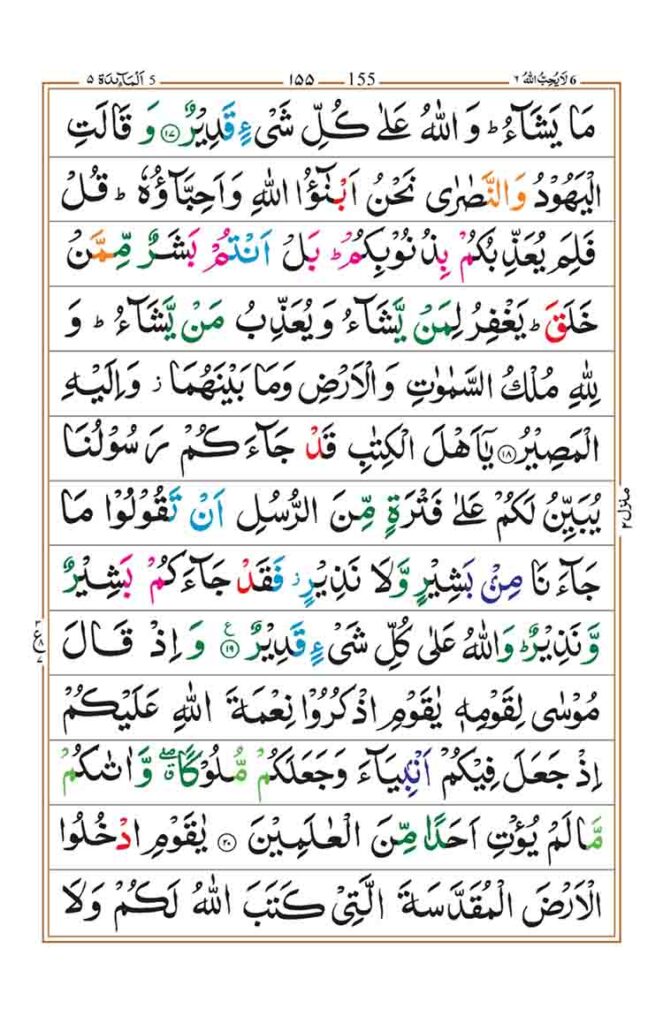 لَا يُحِبُّ اللهُ ٦ 6 155 ١٥٥ 5 اَلْمَآئِدَة ٥
مَا يَشَآءُ ؕ وَ اللهُ عَلٰى كُلِّ شَىْءٍ قَدِيْرٌ ﴿١٧﴾ وَ قَالَتِ
الْيَهُوْدُ وَالنَّصٰرٰى نَحْنُ اَبْنٰٓؤُا اللهِ وَاَحِبَّآؤُهٗ ؕ قُلْ
فَلِمَ يُعَذِّبُكُمْ بِذُنُوْبِكُمْ ؕ بَلْ اَنْتُمْ بَشَرٌ مِّمَّنْ
خَلَقَ ؕ يَغْفِرُ لِمَنْ يَّشَآءُ وَ يُعَذِّبُ مَنْ يَّشَآءُ ؕ وَ
لِلّٰهِ مُلْكُ السَّمٰوٰتِ وَ الْاَرْضِ وَمَا بَيْنَهُمَا ز وَاِلَيْهِ
الْمَصِيْرُ ﴿١٨﴾ يٰۤاَهْلَ الْكِتٰبِ قَدْ جَآءَكُمْ رَسُوْلُنَا
يُبَيِّنُ لَكُمْ عَلٰى فَتْرَةٍ مِّنَ الرُّسُلِ اَنْ تَقُوْلُوْا مَا
جَآءَنَا مِنْۢ بَشِيْرٍ وَّلَا نَذِيْرٍ ز فَقَدْ جَآءَكُمْ بَشِيْرٌ
وَّنَذِيْرٌ ؕ وَاللهُ عَلٰى كُلِّ شَىْءٍ قَدِيْرٌ ﴿١٩﴾ ع وَ اِذْ قَالَ
مُوْسٰى لِقَوْمِهٖ يٰقَوْمِ اذْكُرُوْا نِعْمَةَ اللهِ عَلَيْكُمْ
اِذْ جَعَلَ فِيْكُمْ اَنْۢبِيَآءَ وَجَعَلَكُمْ مُّلُوْكًا ۖ وَّاٰتٰىكُمْ
مَّا لَمْ يُؤْتِ اَحَدًا مِّنَ الْعٰلَمِيْنَ ﴿٢٠﴾ يٰقَوْمِ ادْخُلُوا
الْاَرْضَ الْمُقَدَّسَةَ الَّتِىْ كَتَبَ اللهُ لَكُمْ وَلَا
منزل ٢